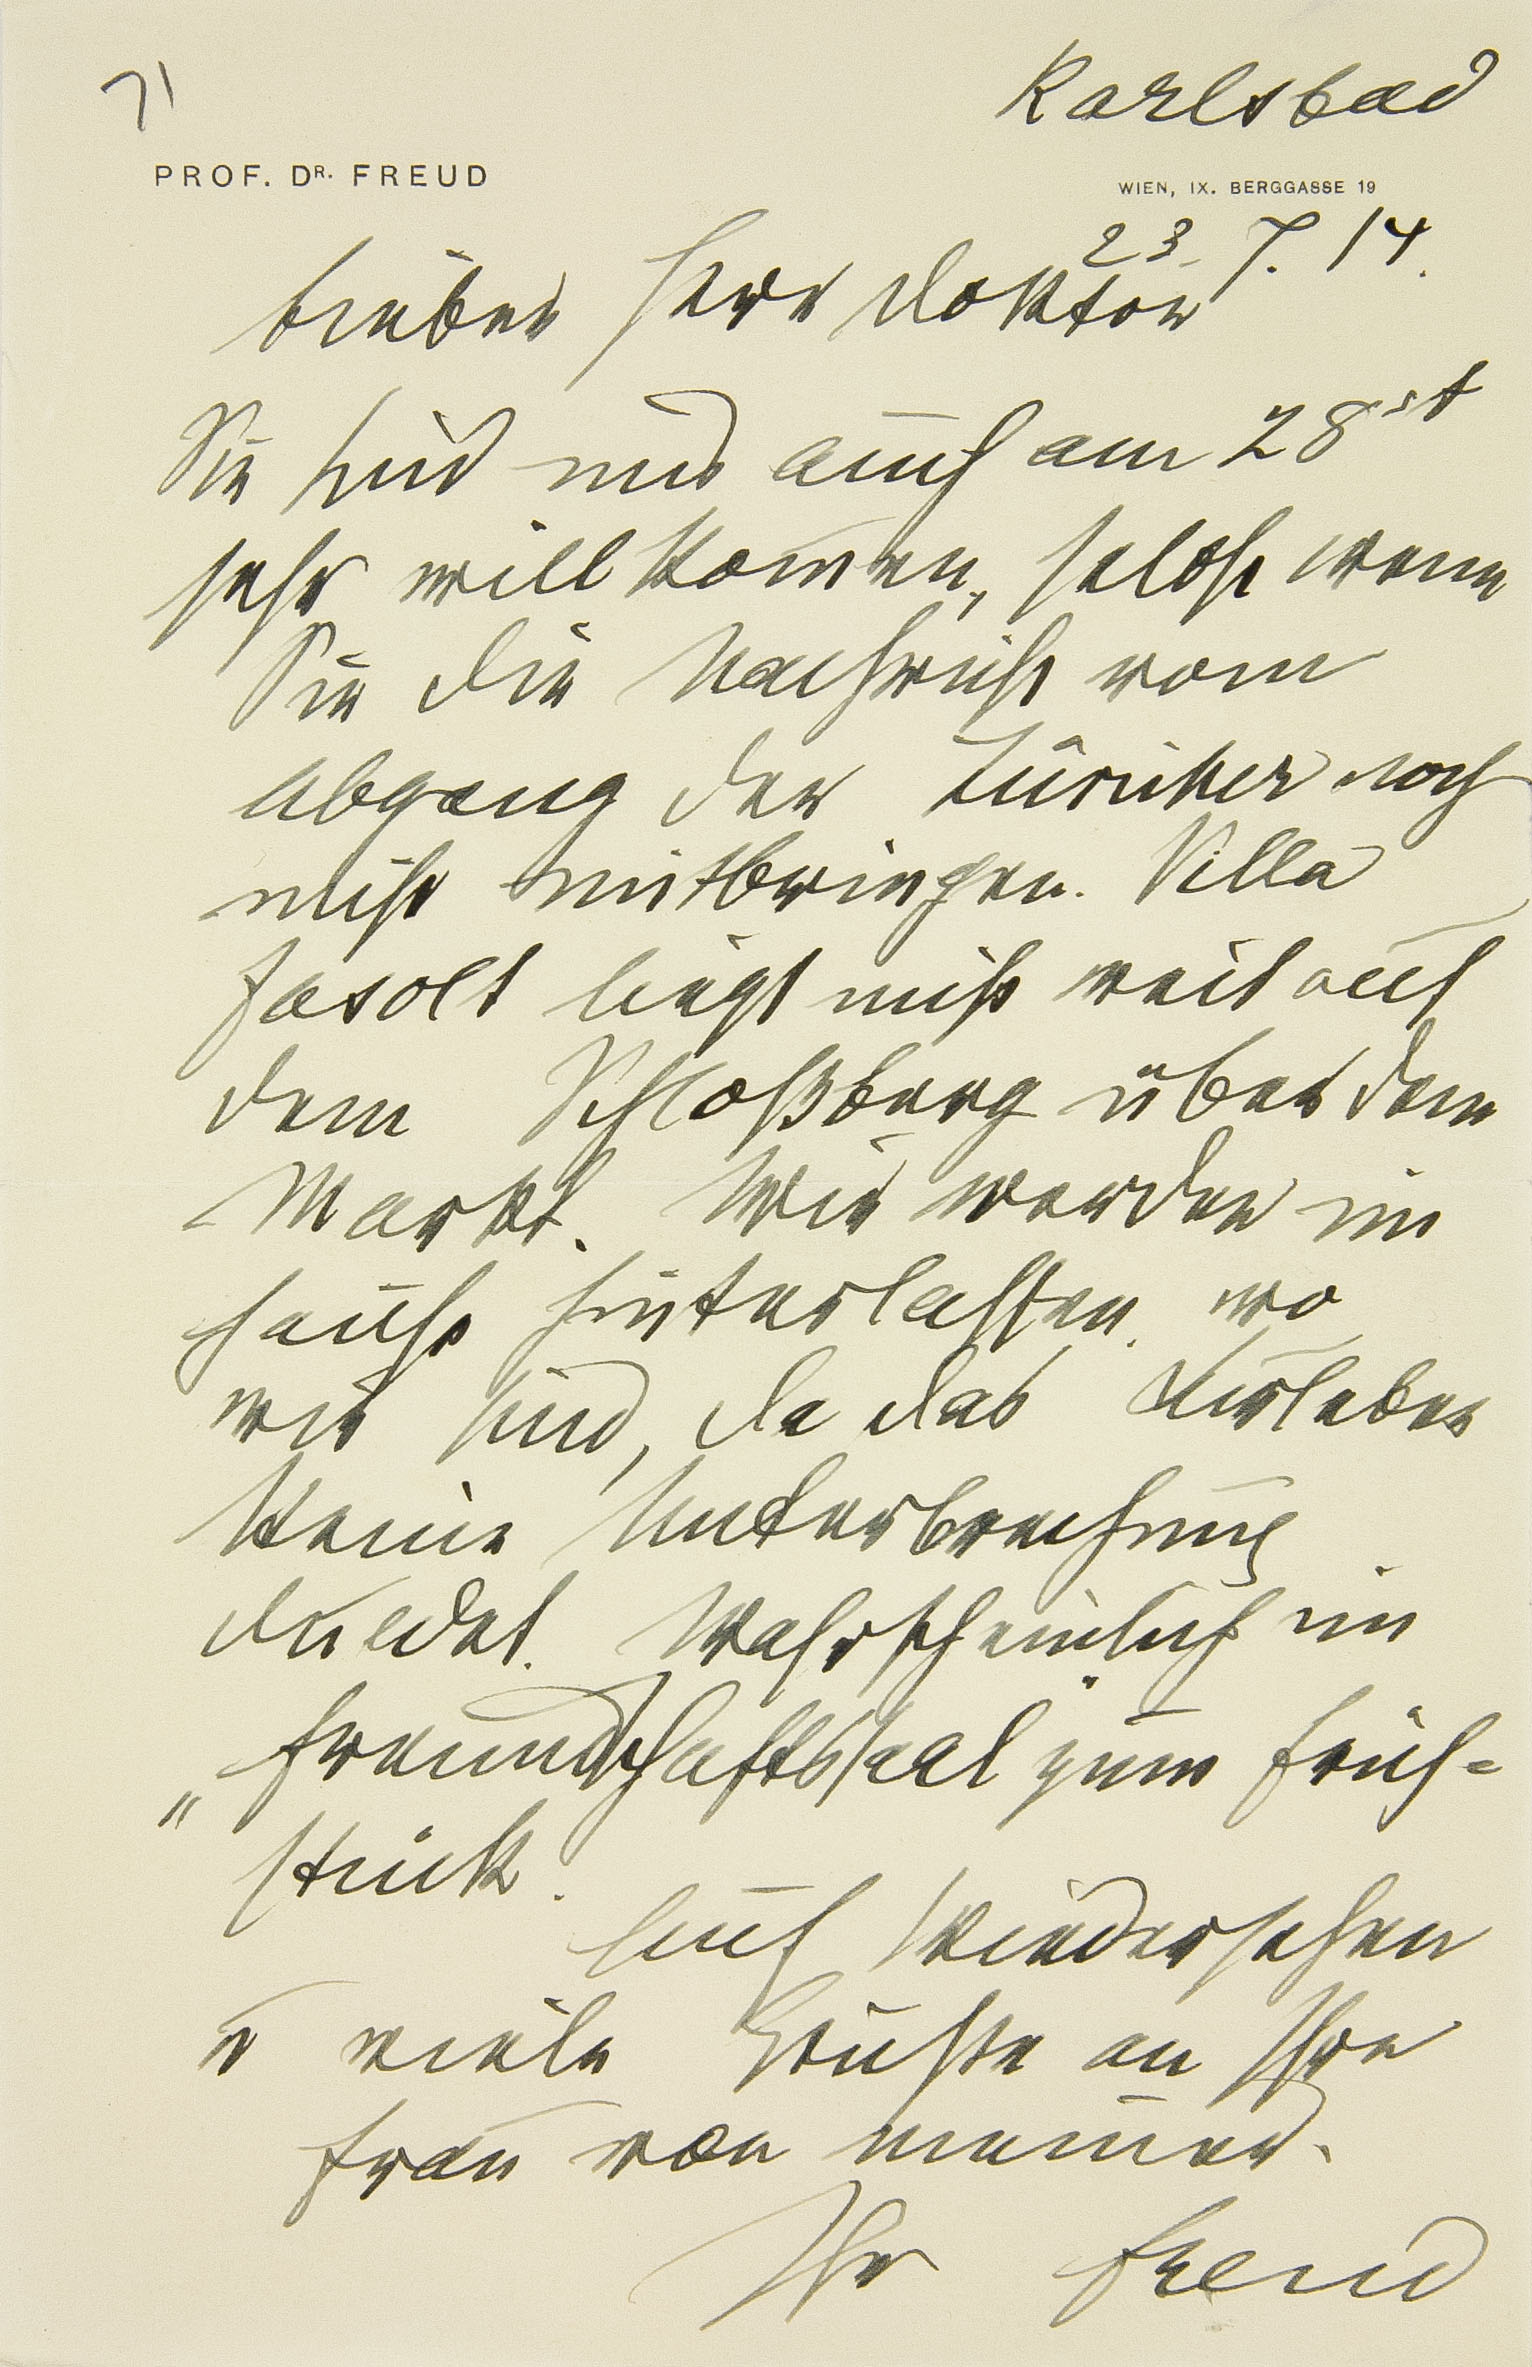 71
Karlsbad
PROF. DR. FREUD
WIEN, IX. BERGGASSE 19
23. 7. 14.
Lieber Herr Doktor
Sie sind uns auch am 28st
sehr willkom̄en, selbst wenn
Sie die Nachricht vom
Abgang der Züricher noch
nicht mitbringen. Villa
Fasolt liegt nicht weit auf
dem Schloßberg über dem
Markt. Wir werden im
Hause hinterlassen, wo
wir sind, da das Kurleben
keine Unterbrechung
duldet. Wahrscheinlich im
„Freundschaftssaal" zum Früh=
stück.
Auf Wiedersehen
u viele Grüße an Ihre
Frau von meiner.
Ihr Freud